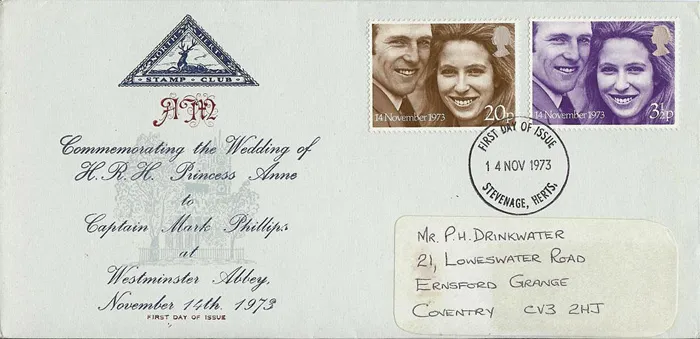 NORTH HERTS
STAMP CLUB
AM
Commemorating the Wedding of
H.R.H. Princess Anne
to
Captain Mark Phillips
at
Westminster Abbey,
November 14th. 1973
FIRST DAY OF ISSUE
14 November 1973
20p
14 November 1973
3½p
FIRST DAY OF ISSUE
14 NOV 1973
STEVENAGE, HERTS.
MR. P.H. DRINKWATER
21, LOWESWATER ROAD
ERNSFORD GRANGE
COVENTRY CV3 2HJ